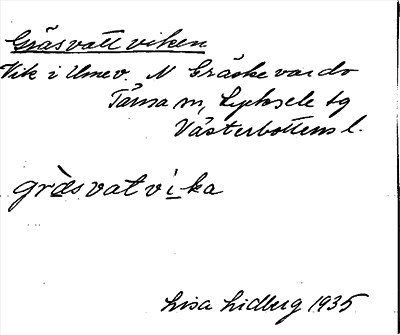 Gräsvattviken
Vik i Umev. N Gräskevardo
Tärna sn, Lycksele tg
Västerbottens l.
grὰsvatvika
Lisa Lidberg 1935